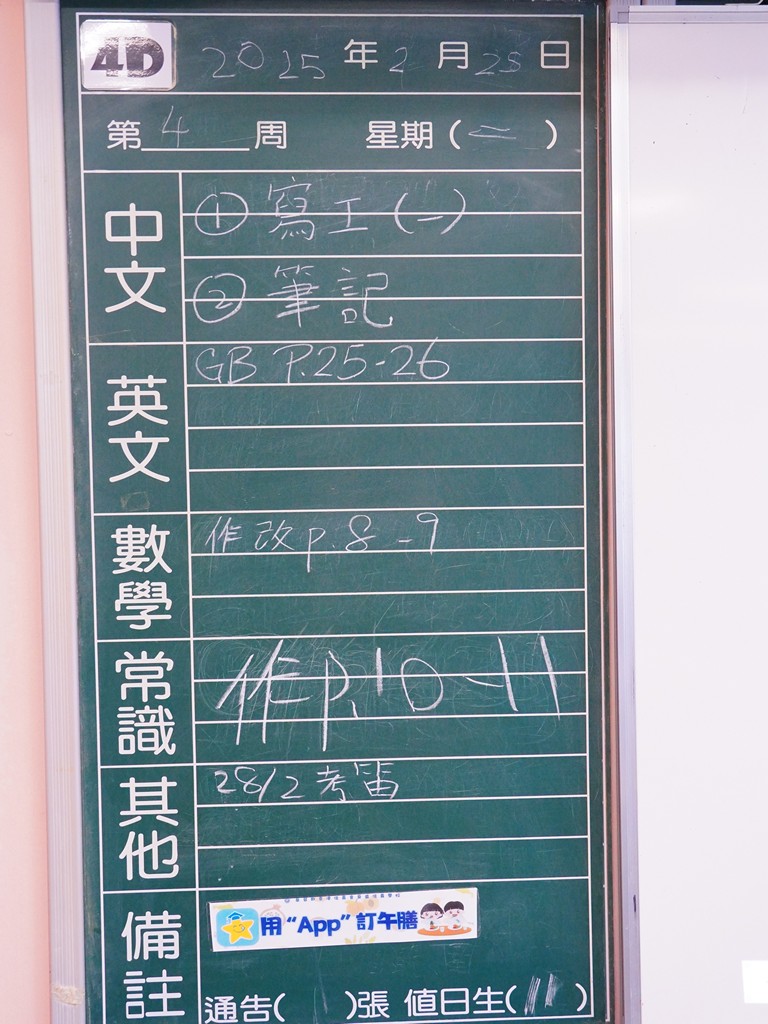 4D 2025年2月25日
第4周 星期(二)
中文
① 寫工(一)
② 筆記
英文
GB P.25-26
數學
作改 p.8-9
常識
作 p.10-11
其他
28/2 考笛
備註
用“App”訂午膳
通告( )張 值日生(11)